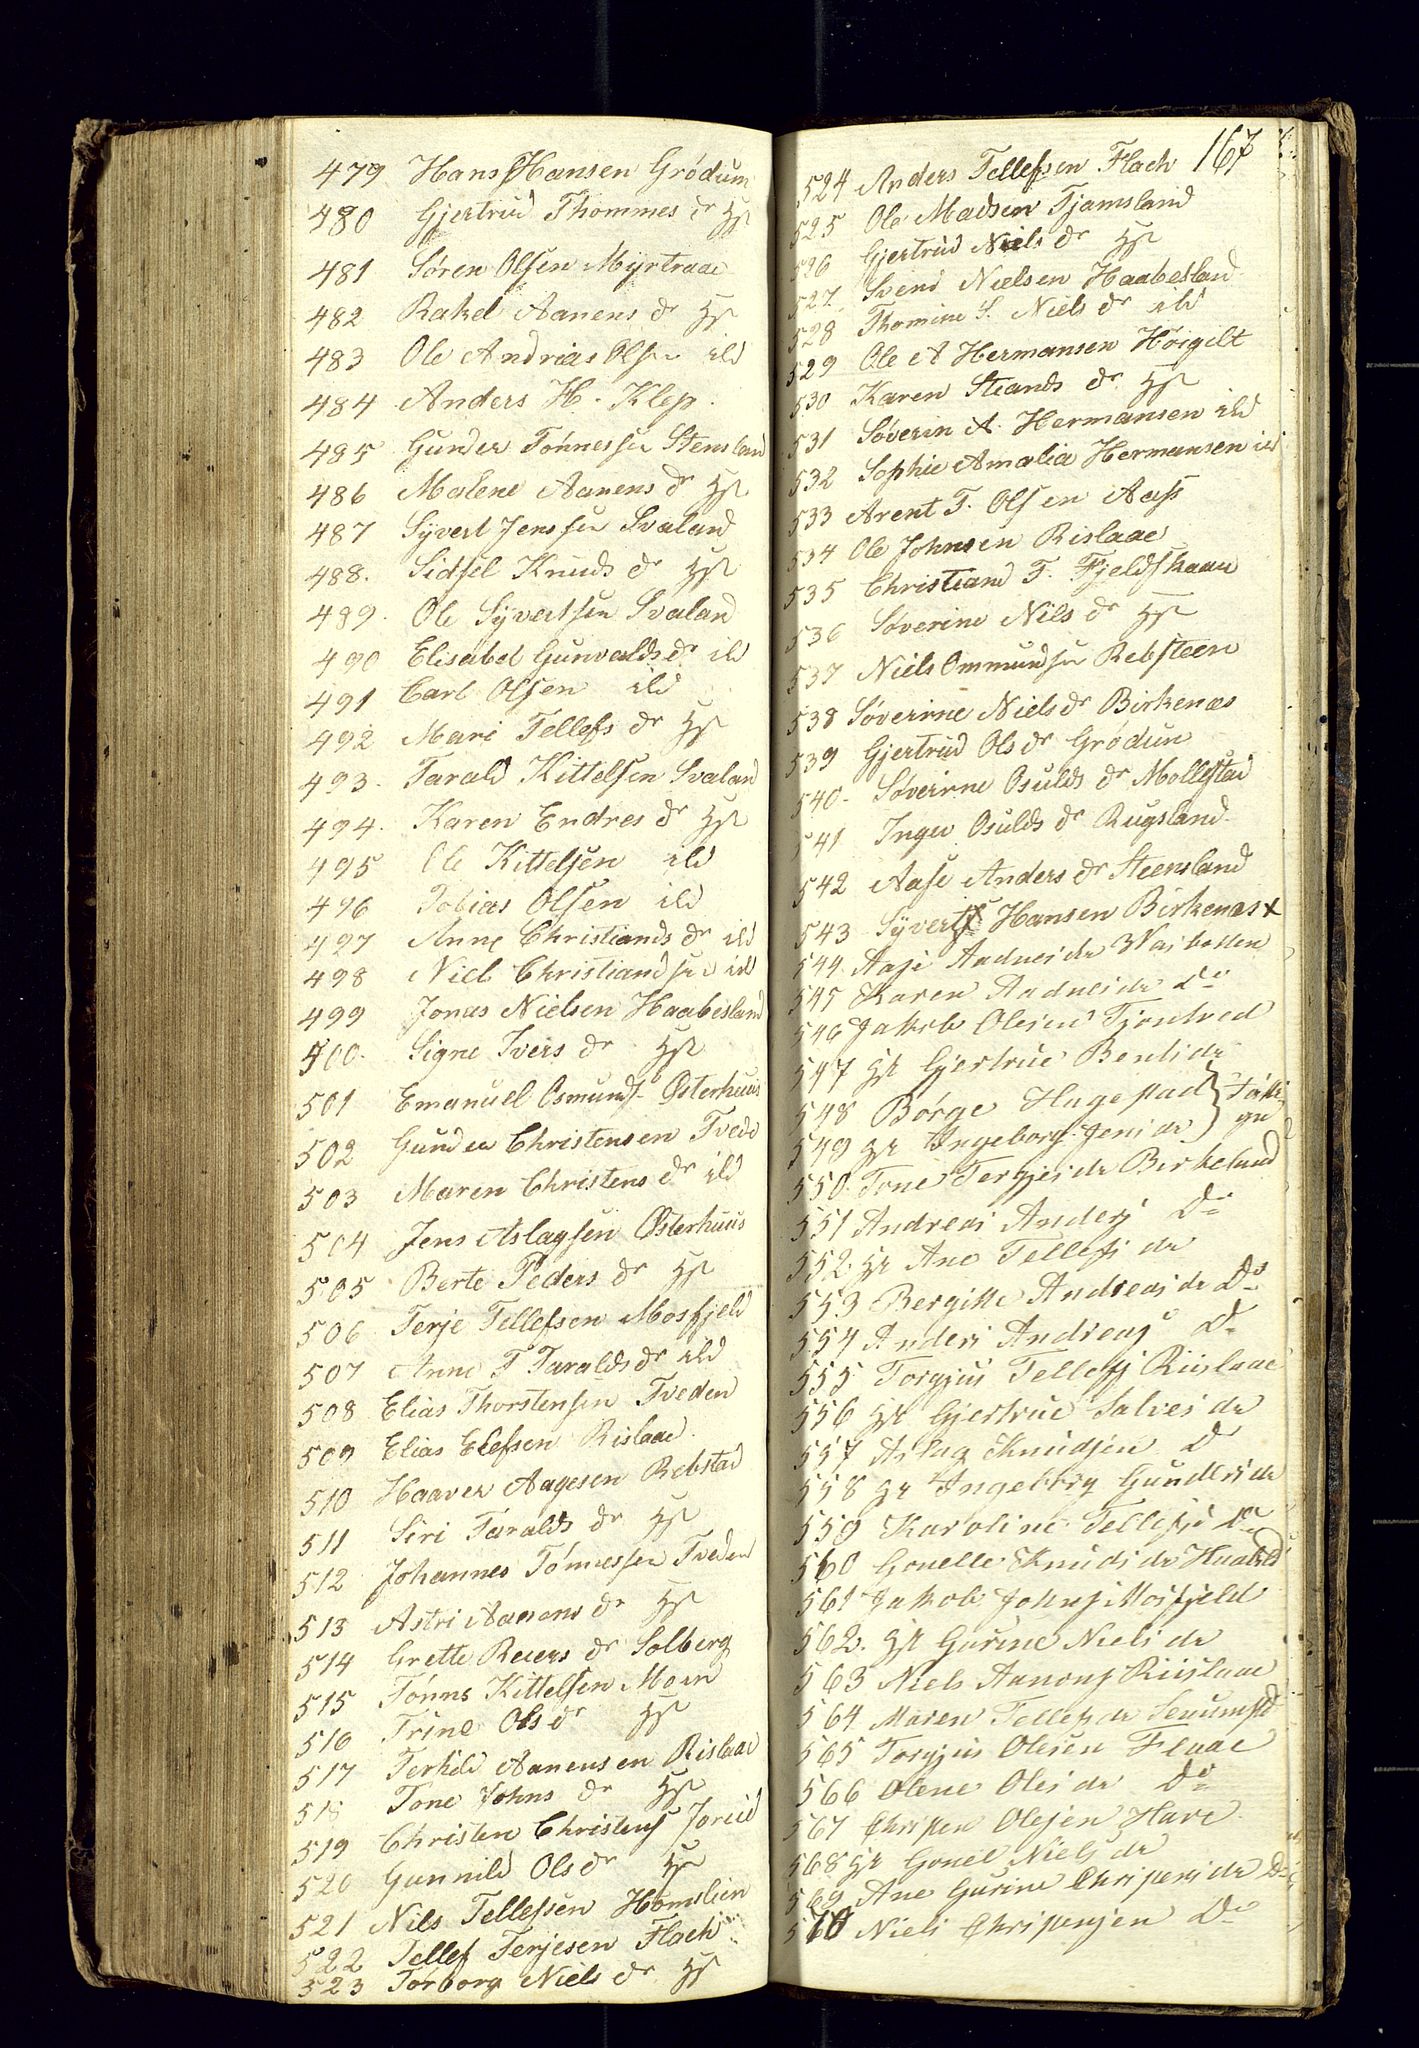 479 Hans Hansen Grödum
480 Gjertrud Thommes dr Hst
481 Søren Olsen Myrtraae
482 Rakel Aanens dr Hst
483 Ole Andrias Olsen ild
484 Anders H. Klep.
485 Gunder Tønnessen Stensland
486 Malene Aanens dr Hst
487 Syvert Jenssen Svaland
488. Sidsel Knuds dr Hst
489. Ole Syvertsen Svaland
490 Elisabel Gunvalds dr ild
491 Carl Olsen ild
492 Mari Tellefs dr Hst
493. Tarald Kittelsen Svaland
494. Karen Endres dr Hst
495 Ole Kittelsen ild
496 Tobias Olsen ild
497 Anne Christiands dr ild
498 Niels Christiandsen ild
499 Jonas Nielsen Haabesland
500. Signe Ivers dr Hst
501 Emanuel Osmunds Østerhuus
502 Gunder Christensen Tvede
503 Maren Christens dr ild
504 Jens Aslagsen Østerhuus
505 Berte Peders dr Hst
506 Terje Tellefsen Mosfjeld
507 Anne T Taralds dr ild
508 Elias Thorstensen Tveden
509 Elias Elefsen Rislaae.
510 Haaver Aagesen Rebstad
511 Siri Taralds dr Hst
512 Johannes Tønnessen Tveden
513 Astri Aanons dr Hst
514 Grette Reiers dr Solberg
515 Tønns Kittelsen Moen
516 Trine Ols dr Hst
517 Terkild Aanensen Rislaae
518 Tone Johns dr Hst
519 Christen Christens
520 Gunnild Ols dr Hst
521 Nils Tellefsen Homslien
522 Tellef Terjesen Flach
523 Torborg Niels dr Hst
167
524 Anders Tellefsen Flach
525 Ole Madsen Tjamsland
526 Gjertrud Niels dr Hst
527. Svend Nielsen Haabesland
528 Thomine S. Niels dr ild
529 Ole A Hermansen Høigilt
530 Karen Steands dr Hst
531 Søverin A. Hermansen ild
532 Sophie Amalia Hermansen ild
533 Arent T. Olsen Aass
534 Ole Johnsen Rislaae
535 Christiand T. Fjeldskaau
536 Søverine Nils dr Hst
537 Niels Ommundsen Rebsteen
538 Søverine Niels dr Birkenæs
539 Gjertrud Ols dr Grödum
540- Søverine Osulds dr Mollestad
541 Inger Osulds dr Rugsland
542 Aase Anders dr Steensland
543 Syvert Hansen Birkenæs x
544 Aase Aadnes dr
545 Karen Aadnes dr Do
546 Jakob Olesen Tjontved
547 Hst Gjertrue Bents dr
548 Børge Hagestad
549 Hst Ingeborg Jens dr
550. Tone Tergjes dr Birkeland
551 Andreas Anders Do
552. Hst Ane Tellefs dr
553 Bergitte Andreas dr Do
554 Anders Andreas Do
555 Torgjus Tellefs Riislaae
556 Hst Gjertrue Salves dr
557 Aslag Knudsen Do
558 Hst Ingeborg Gunders dr
559 Karoline Tellefs d Do
560 Gonelle Knuds dr
561 Jakob Johns Mosfjeld
562. Hst Gurine Niels dr
563 Niels Aanons Riislaae
564 Maren Tellefs dr
565 Torgjus Olesen Flaae
566 Olene Oles dr Do
567 Christen Olesen Hare
568 Hst Gonel Niels dr
569 Ane Gurine Christens dr Do
570 Niels Christensen Do